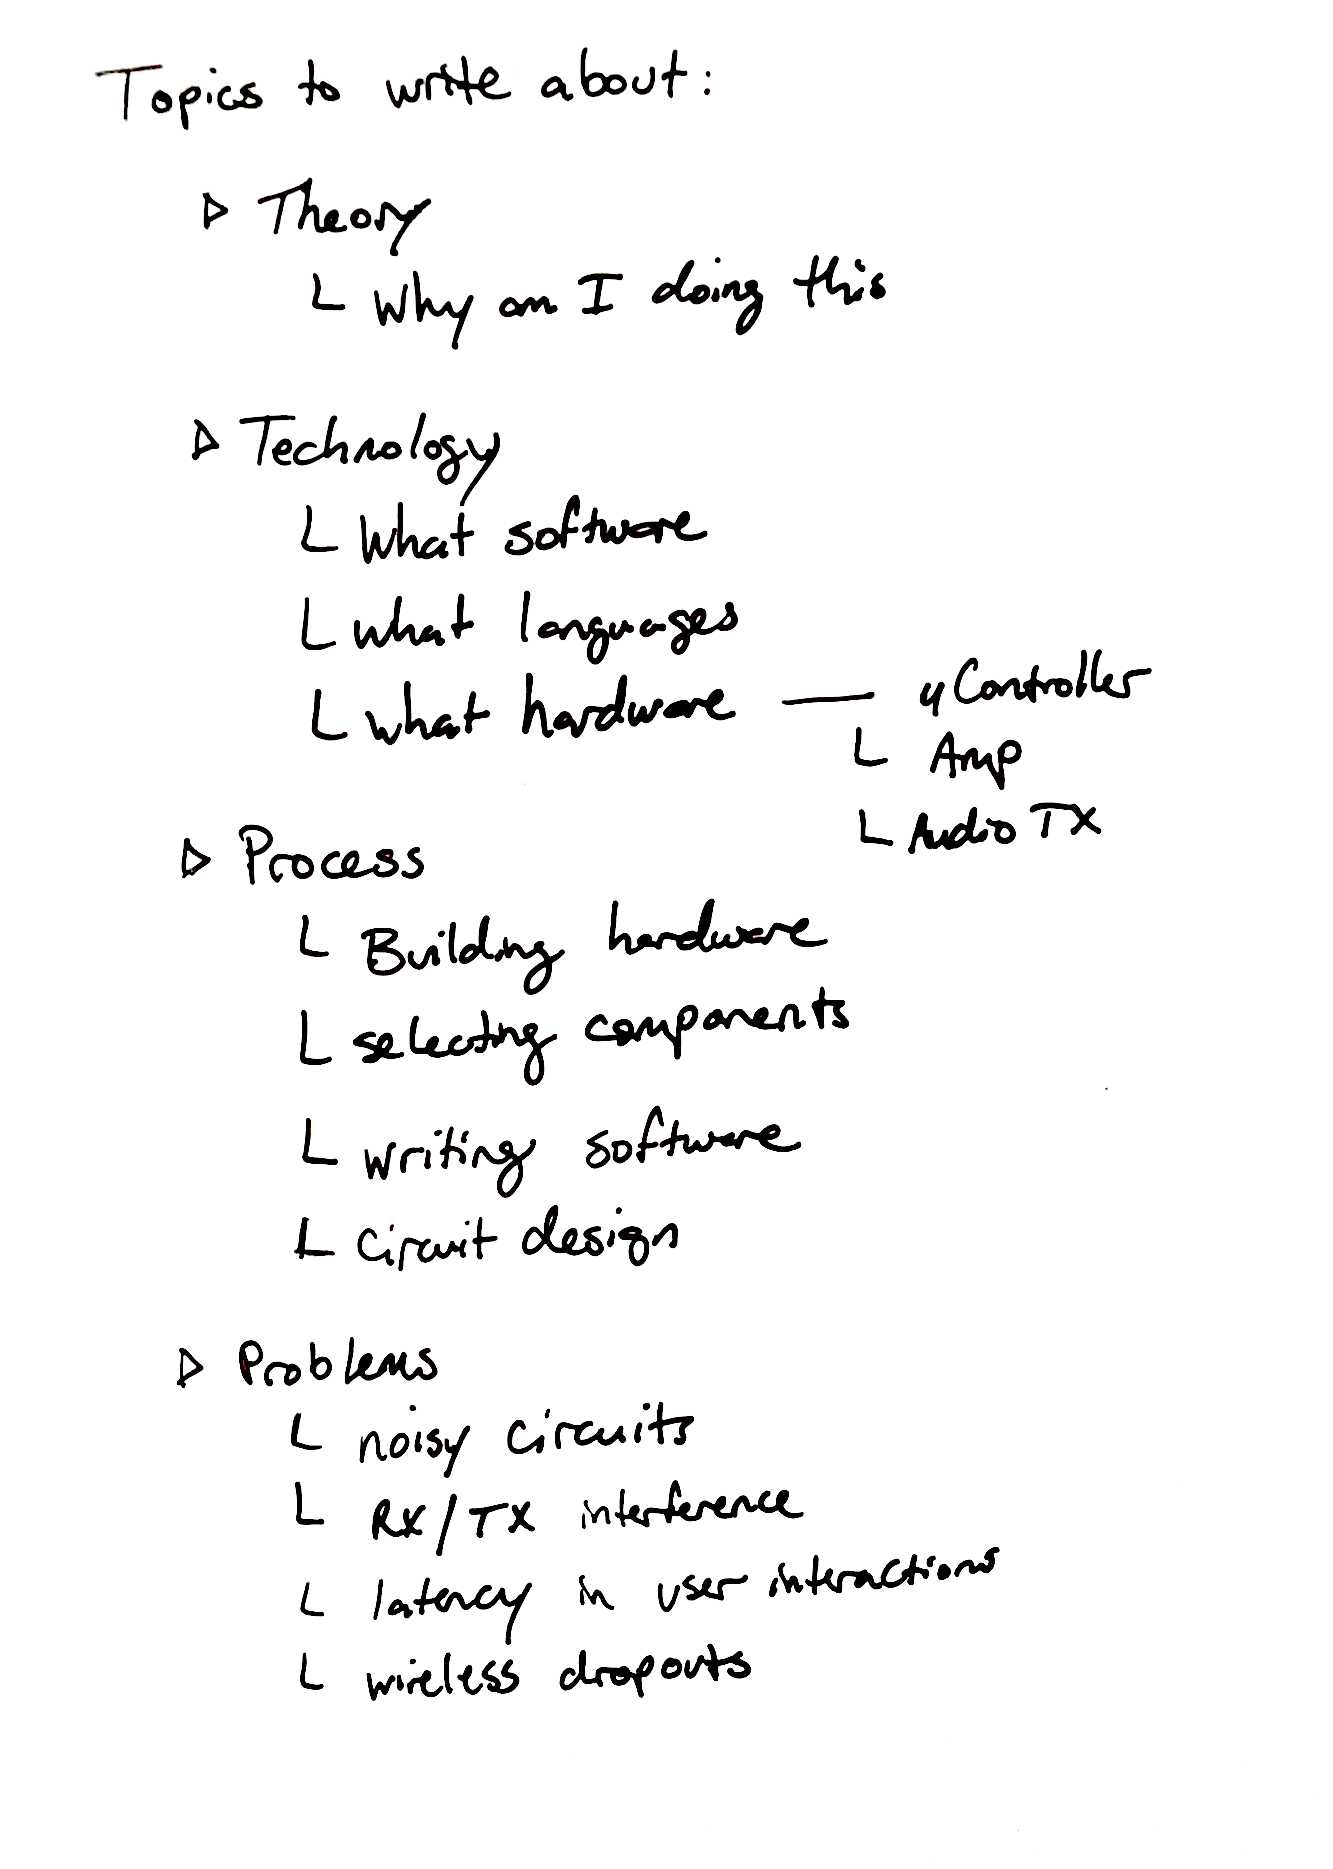 Topics to write about:
Theory
Why am I doing this
Technology
What software
what languages
what hardware — μController
Amp
Audio TX
Process
Building hardware
selecting components
writing software
Circuit design
Problems
noisy circuits
RX/TX interference
latency in user interactions
wireless dropouts